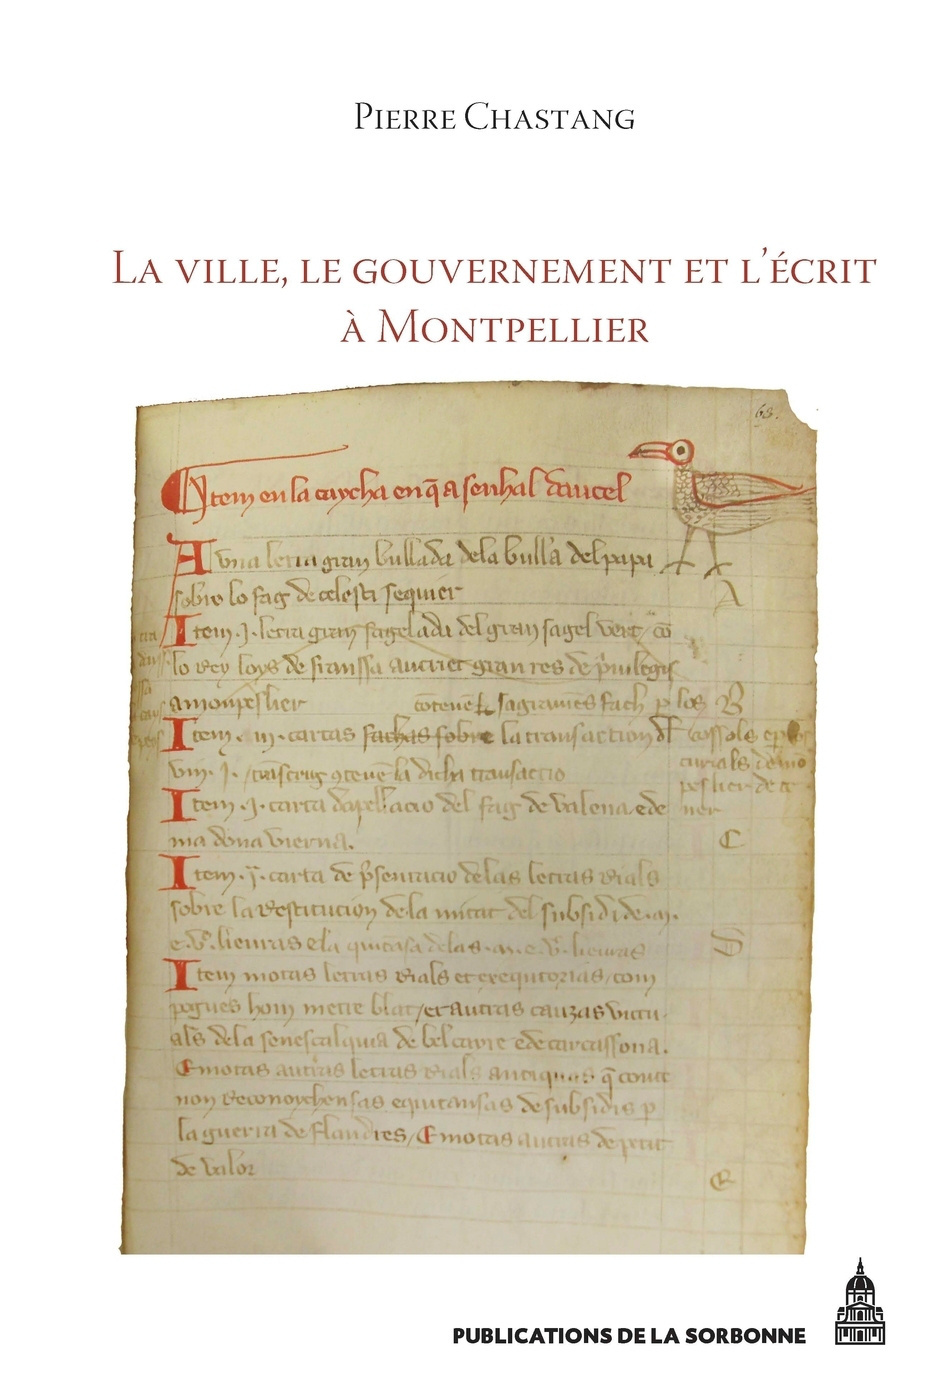 Pierre Chastang
La ville, le gouvernement et l'écrit
à Montpellier
68.
Item en la caycha en q̄ a senhal daucel
A vna letra gran bullada dela bulla del papa
sobre lo fag de celesti sequier
A
Item .j. letra gran sagelada del gran sagel vert / cō
lo rey loys de franssa autriet gran res de p̄uilegis
amonpeslier
sagramēs fach p los
B
Item . iij . cartas fachas sobre la transaction
cossols
curials de mō
peslier
la dicha transactio
Item .j. carta dapellacio del fag de valena ede
ma dona vierna.
C
Item . j . carta de p̄sentacio delas letras rials
sobre la restitucion dela mitat del subsidi de .m.
D
Item motas letras rials et exequtorias / com
pogues hom metre blat / et autras cauzas vitu
als dela senescalquia de belcaire ede carcassona.
E motas autras letras rials antiquas q̄
non reconoychensas equitansas de subsidis p
la guerra de flandres / E motas autras de petit
de valor
E
PUBLICATIONS DE LA SORBONNE